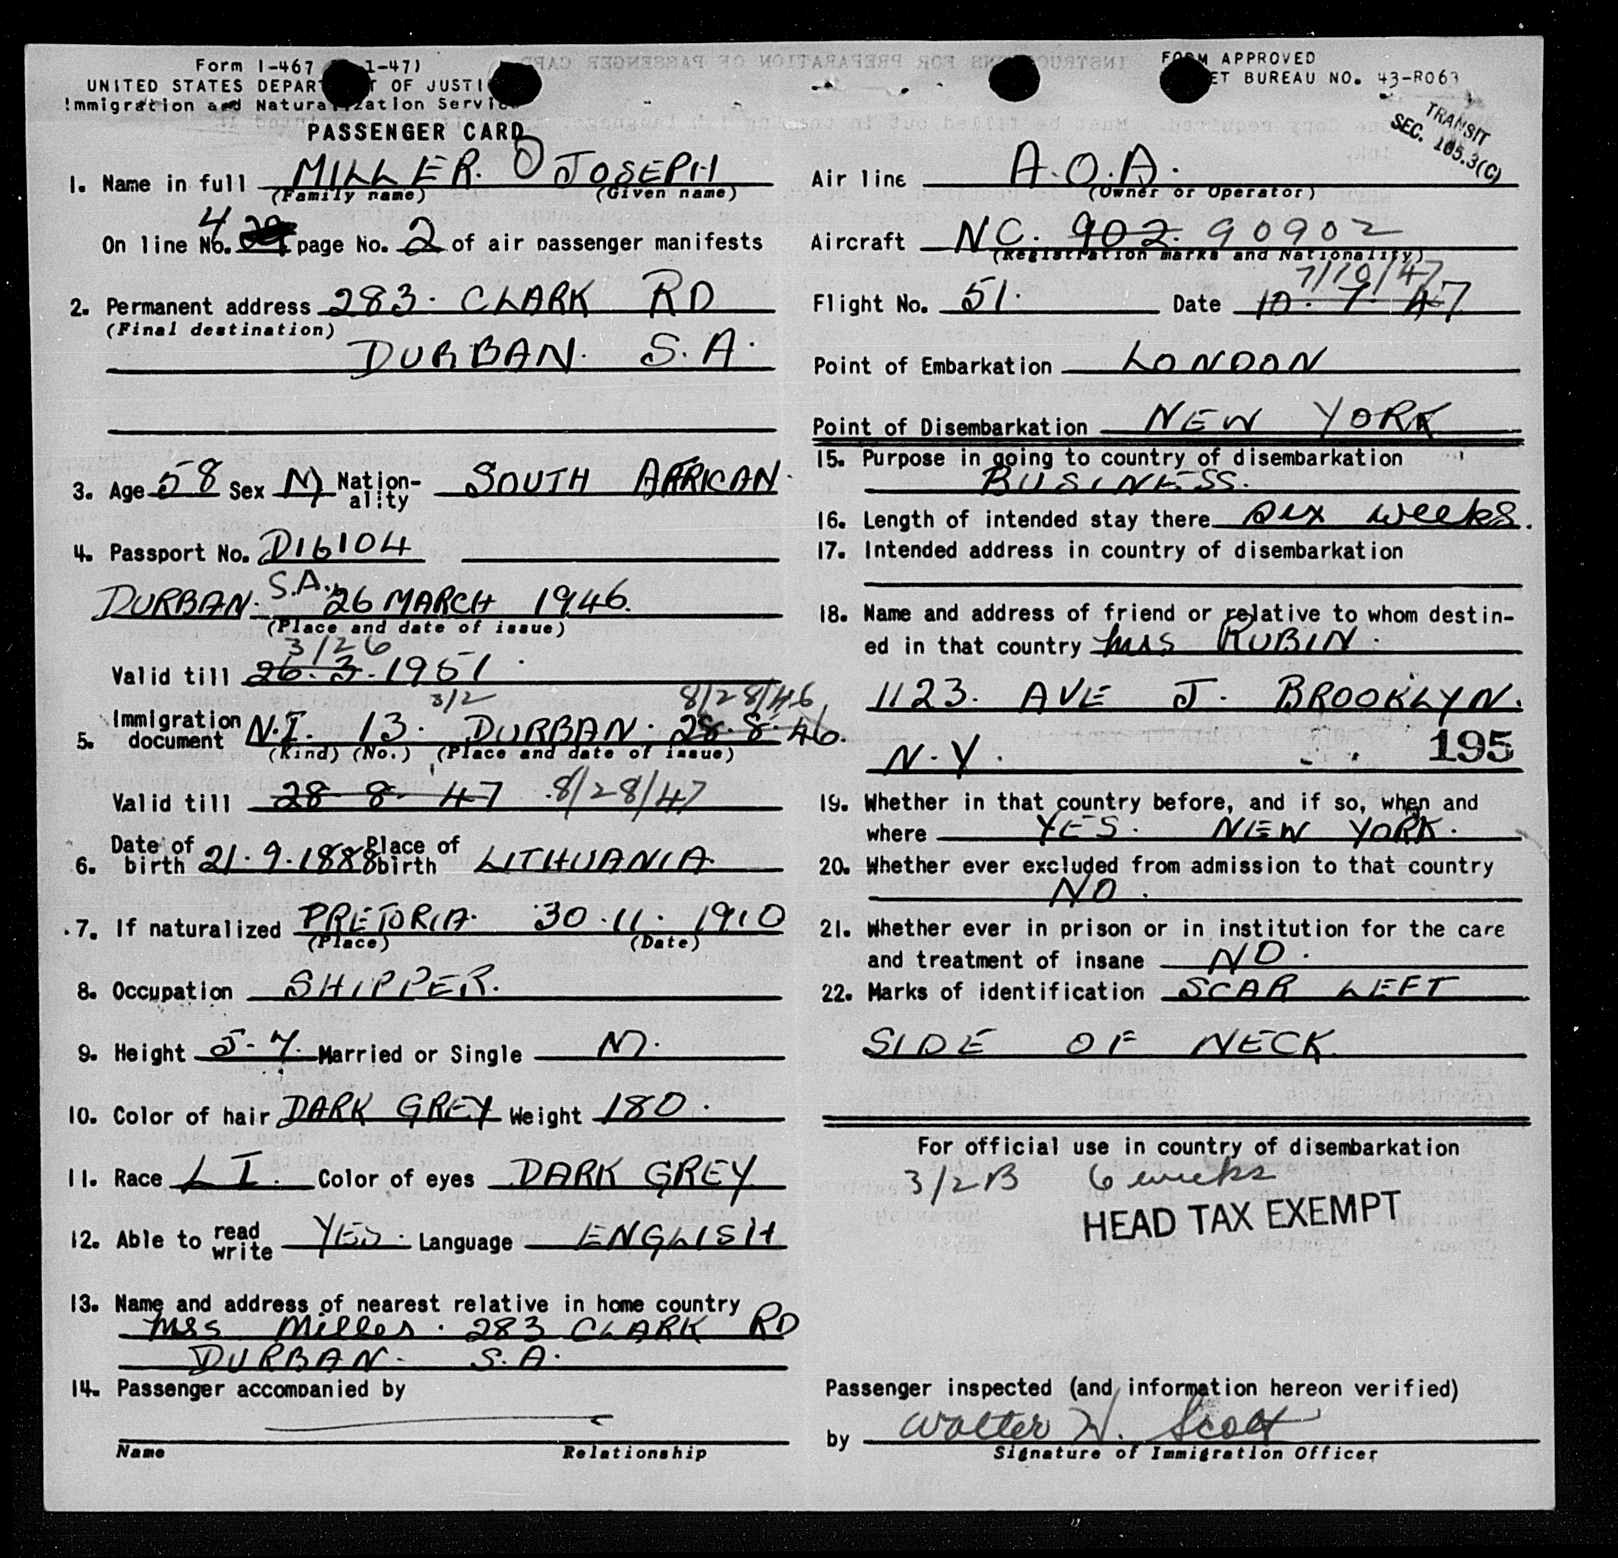 Form I-467 1-47)
UNITED STATES DEPAR T OF JUSTI
Immigration and Natura ization Servi
PASSENGER CARD
1. Name in full MILLER. JOSEPH
(Family name) (Given name)
4
On line No. page No. 2 of air passenger manifests
2. Permanent address 283. CLARK RD
(Final destination)
DURBAN. S.A.
3. Age 58 Sex M Nation-ality SOUTH AFRICAN.
4. Passport No. D16104
DURBAN. S.A., 26 MARCH 1946.
(Place and date of issue)
3/26
Valid till 26.3.1951.
3/2 8/28/46
5. Immigration document N.I. 13. DURBAN. 28.8.46.
(Kind) (No.) (Place and date of issue)
Valid till 28 8. 47 8/28/47
6. Date of birth 21.9.1888 Place of birth LITHUANIA.
7. If naturalized PRETORIA. 30.11.1910
(Place) (Date)
8. Occupation SHIPPER.
9. Height 5-7. Married or Single M.
10. Color of hair DARK GREY Weight 180.
11. Race L I. Color of eyes DARK GREY.
12. Able to read write YES. Language ENGLISH
13. Name and address of nearest relative in home country
Mrs Miller. 283 CLARK RD
DURBAN. S.A.
14. Passenger accompanied by
Name Relationship
FORM APPROVED
ET BUREAU NO. 43-R063
TRANSIT
SEC. 165.3(C)
Air line A.O.A.
(Owner or Operator)
Aircraft NC. 902. 90902
(Registration marks and Nationality)
7/10/47
Flight No. 51. Date 10.7.47
Point of Embarkation LONDON
Point of Disembarkation NEW YORK
15. Purpose in going to country of disembarkation
BUSINESS.
16. Length of intended stay there six weeks.
17. Intended address in country of disembarkation
18. Name and address of friend or relative to whom destin-
ed in that country Mrs RUBIN.
1123. AVE J. BROOKLYN.
N.Y. 195
19. Whether in that country before, and if so, when and
where YES. NEW YORK.
20. Whether ever excluded from admission to that country
NO.
21. Whether ever in prison or in institution for the care
and treatment of insane NO.
22. Marks of identification SCAR LEFT
SIDE OF NECK.
For official use in country of disembarkation
3/2B 6 weeks
HEAD TAX EXEMPT
Passenger inspected (and information hereon verified)
by Walter W. Scott
Signature of Immigration Officer